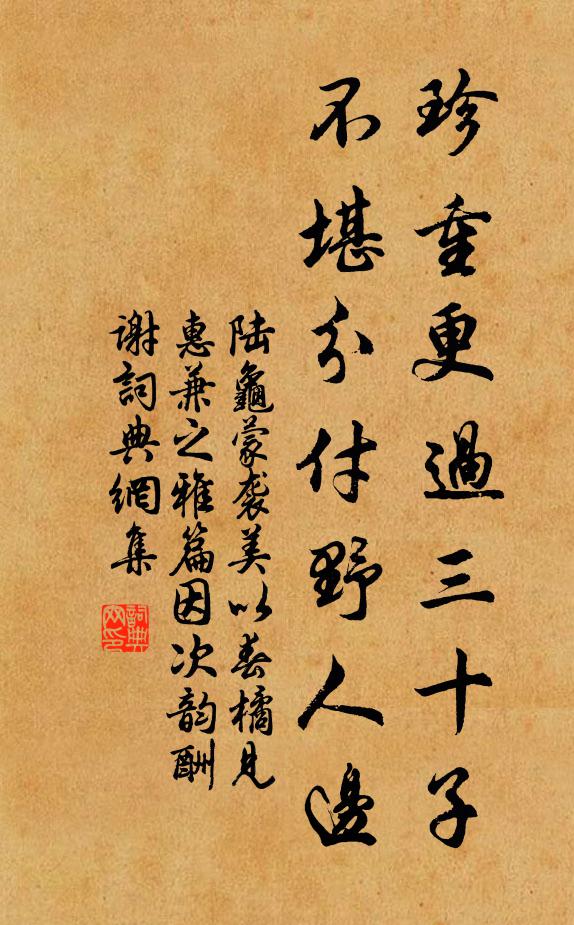 珍重更過三十子
不堪分付野人邊
陆龜蒙袭美以春橘見
惠兼之雅篇因次韵酬
谢詞典網集
詞典网印